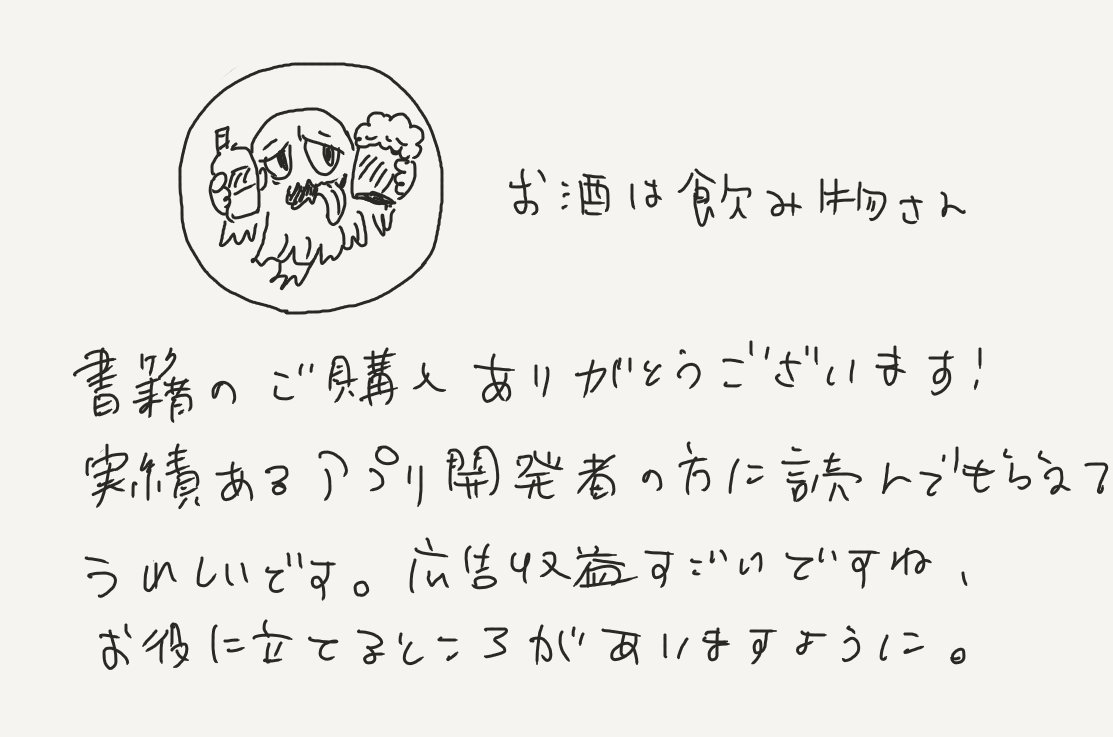 お酒は飲み物さん
書籍のご購入ありがとうございます!
実績あるアプリ開発者の方に読んでもらえて
うれしいです。広告収益すごいですね、
お役に立てるところがありますように。